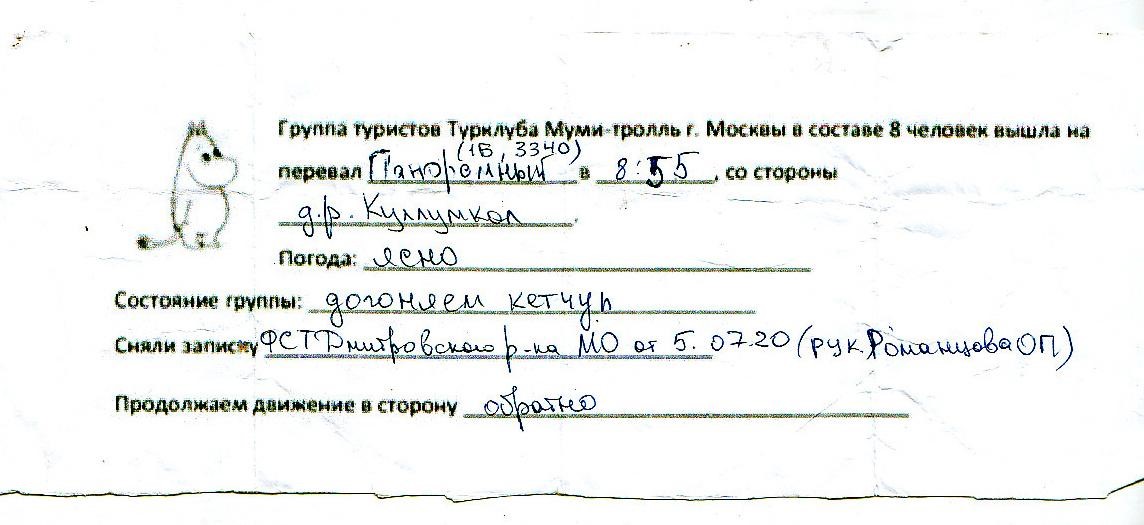 Группа туристов Турклуба Муми-тролль г. Москвы в составе 8 человек вышла на
(1Б, 3340)
перевал Панорамный в 8:55, со стороны
д.р. Куллумкол.
Погода: ясно
Состояние группы: догоняем кетчуп
Сняли записку ФСТ Дмитровского р-на МО от 5.07.20 (рук. Романцова ОП)
Продолжаем движение в сторону обратно